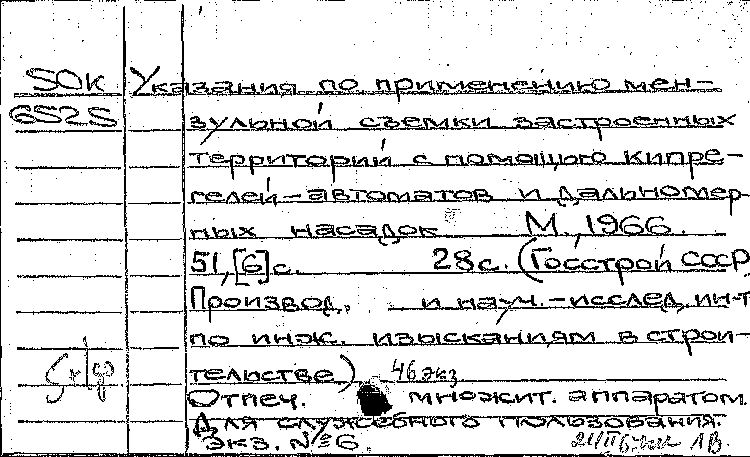 50К Указания по применению мен-
6525 зульной съемки застроенных
территорий с помощью кипре-
гелей-автоматов и дальномер
ных насадок М., 1966.
51,[6]с. 28с. (Госстрой СССР.
Производ. и науч.-исслед. ин-т
по инж. изысканиям в строи-
тельстве) 46 экз
Отпеч. множит. аппаратом.
Для служебного пользования.
Экз. № 6.
ЛВ.